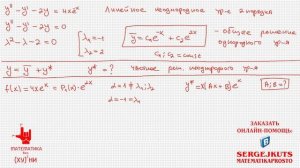 y'' - y' - 2y = 4xe^x Линейное неоднородное ур-е 2 порядка
y'' - y' - 2y = 0
λ² - λ - 2 = 0
λ₁ = -1
λ₂ = 2
ȳ = C₁e^-x + C₂e^2x - общее решение однородного ур-я
C₁; C₂ = const
y = ȳ + y* y* = ? частное реш. неоднородного ур-я
f(x) = 4xe^x = P₁(x)·e^x
y* = (Ax + B)e^x A; B = ?
МАТЕМАТИКА
(ХУ)'НИ
ЗАКАЗАТЬ
ОНЛАЙН-ПОМОЩЬ:
SERGEJKUTS
МАТЕМАТИКАПРОСТО